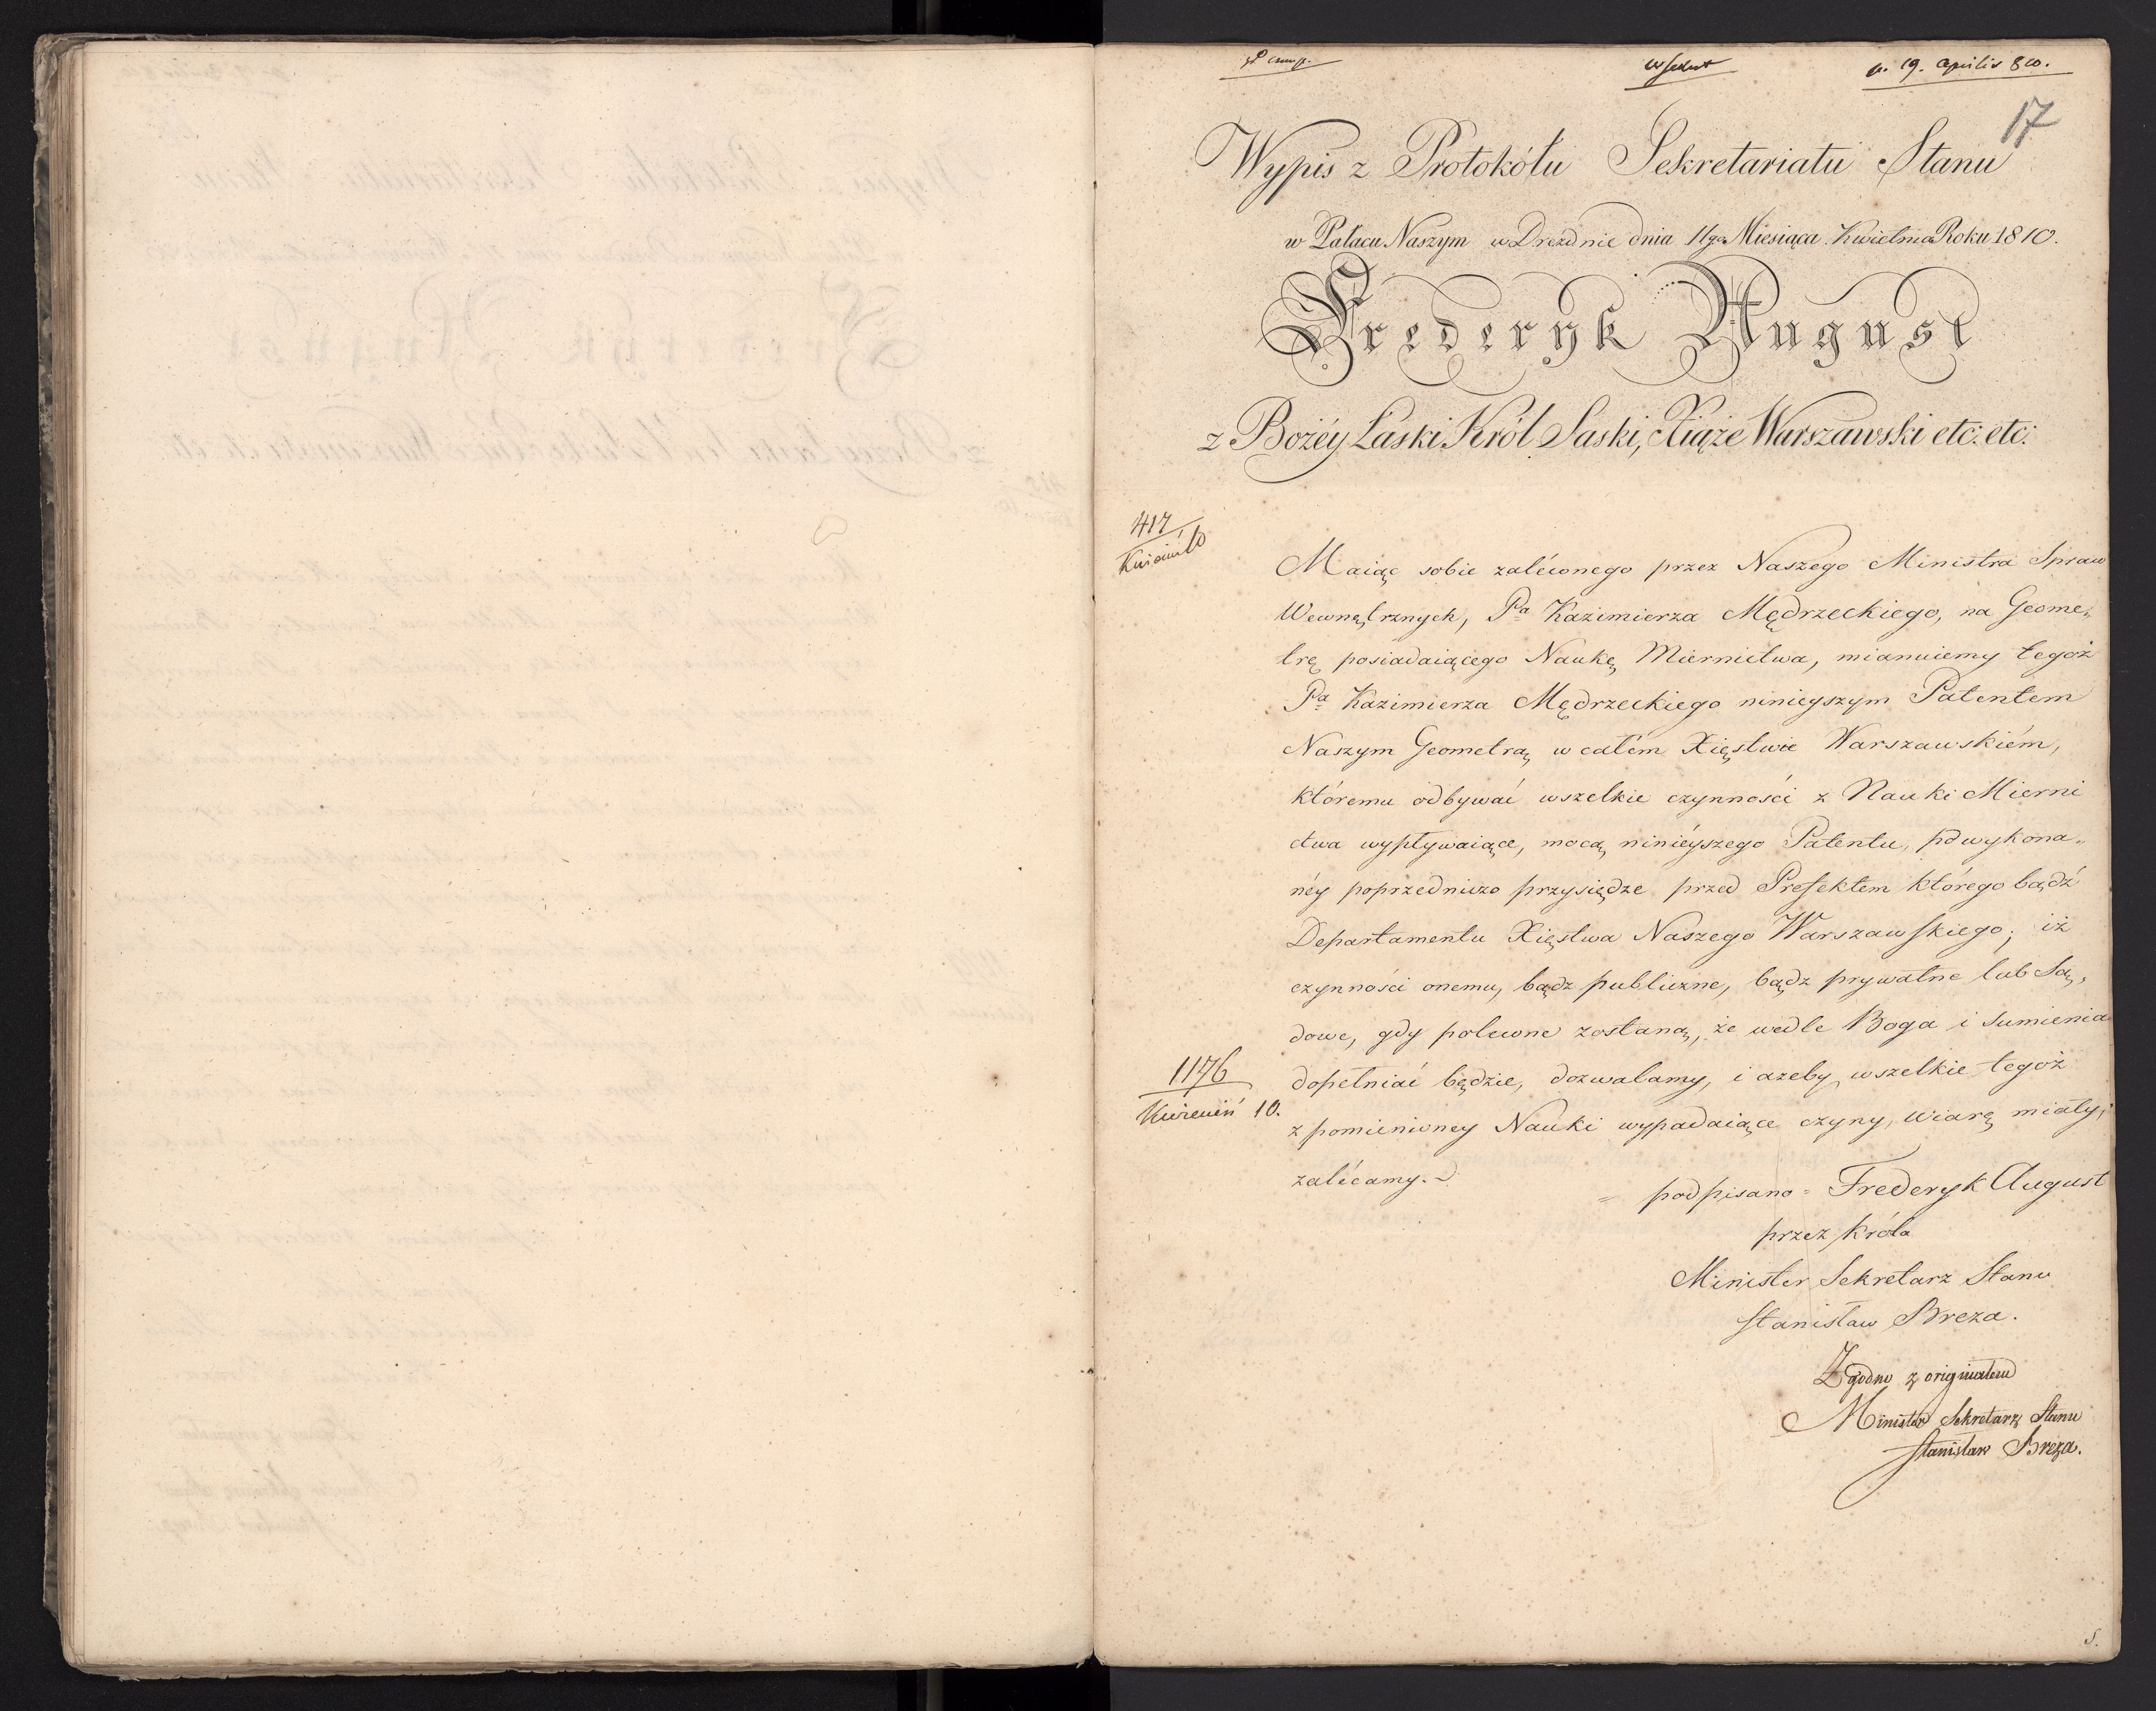 p. 19. Aprilis 810.
17
Wypis z Protokółu Sekretariatu Stanu
w Pałacu Naszym w Dreźdnie dnia 11go Miesiąca Kwietnia Roku 1810.
Frederyk August
z Bożéy Łaski Król Saski, Xiąże Warszawski etc: etc:
417
Kwiecień 10
Maiąc sobie zaléconego przez Naszego Ministra Spraw
Wewnętrznych, Pa Kazimierza Mędrzeckiego, na Geome„
trę posiadaiącego Naukę Miernictwa, mianuiemy tegoż
Pa Kazimierza Mędrzeckiego ninieyszym Patentem
Naszym Geometrą w całém Xięstwie Warszawskiém,
któremu odbywać wszelkie czynności z Nauki Mierni
ctwa wypływaiące, mocą ninieyszego Patentu, po wykona„
néy poprzedniczo przysiędze przed Prefektem którego bądź
Departamentu Xięstwa Naszego Warszawskiego; iż
czynności onemu, bądz publiczne, bądz prywatne lub Są„
dowe, gdy polecone zostaną, że wedle Boga i Sumienia
dopełniać będzie, dozwalamy, i ażeby wszelkie tegoż
z pomienioney Nauki wypadaiące czyny, wiarę miały,
zalécamy.
1176
Kwiecień 10.
podpisano = Frederyk August
przez Króla
Minister Sekretarz Stanu
Stanisław Breza.
Zgodno z originałem
Minister Sekretarz Stanu
Stanisław Breza.
5.